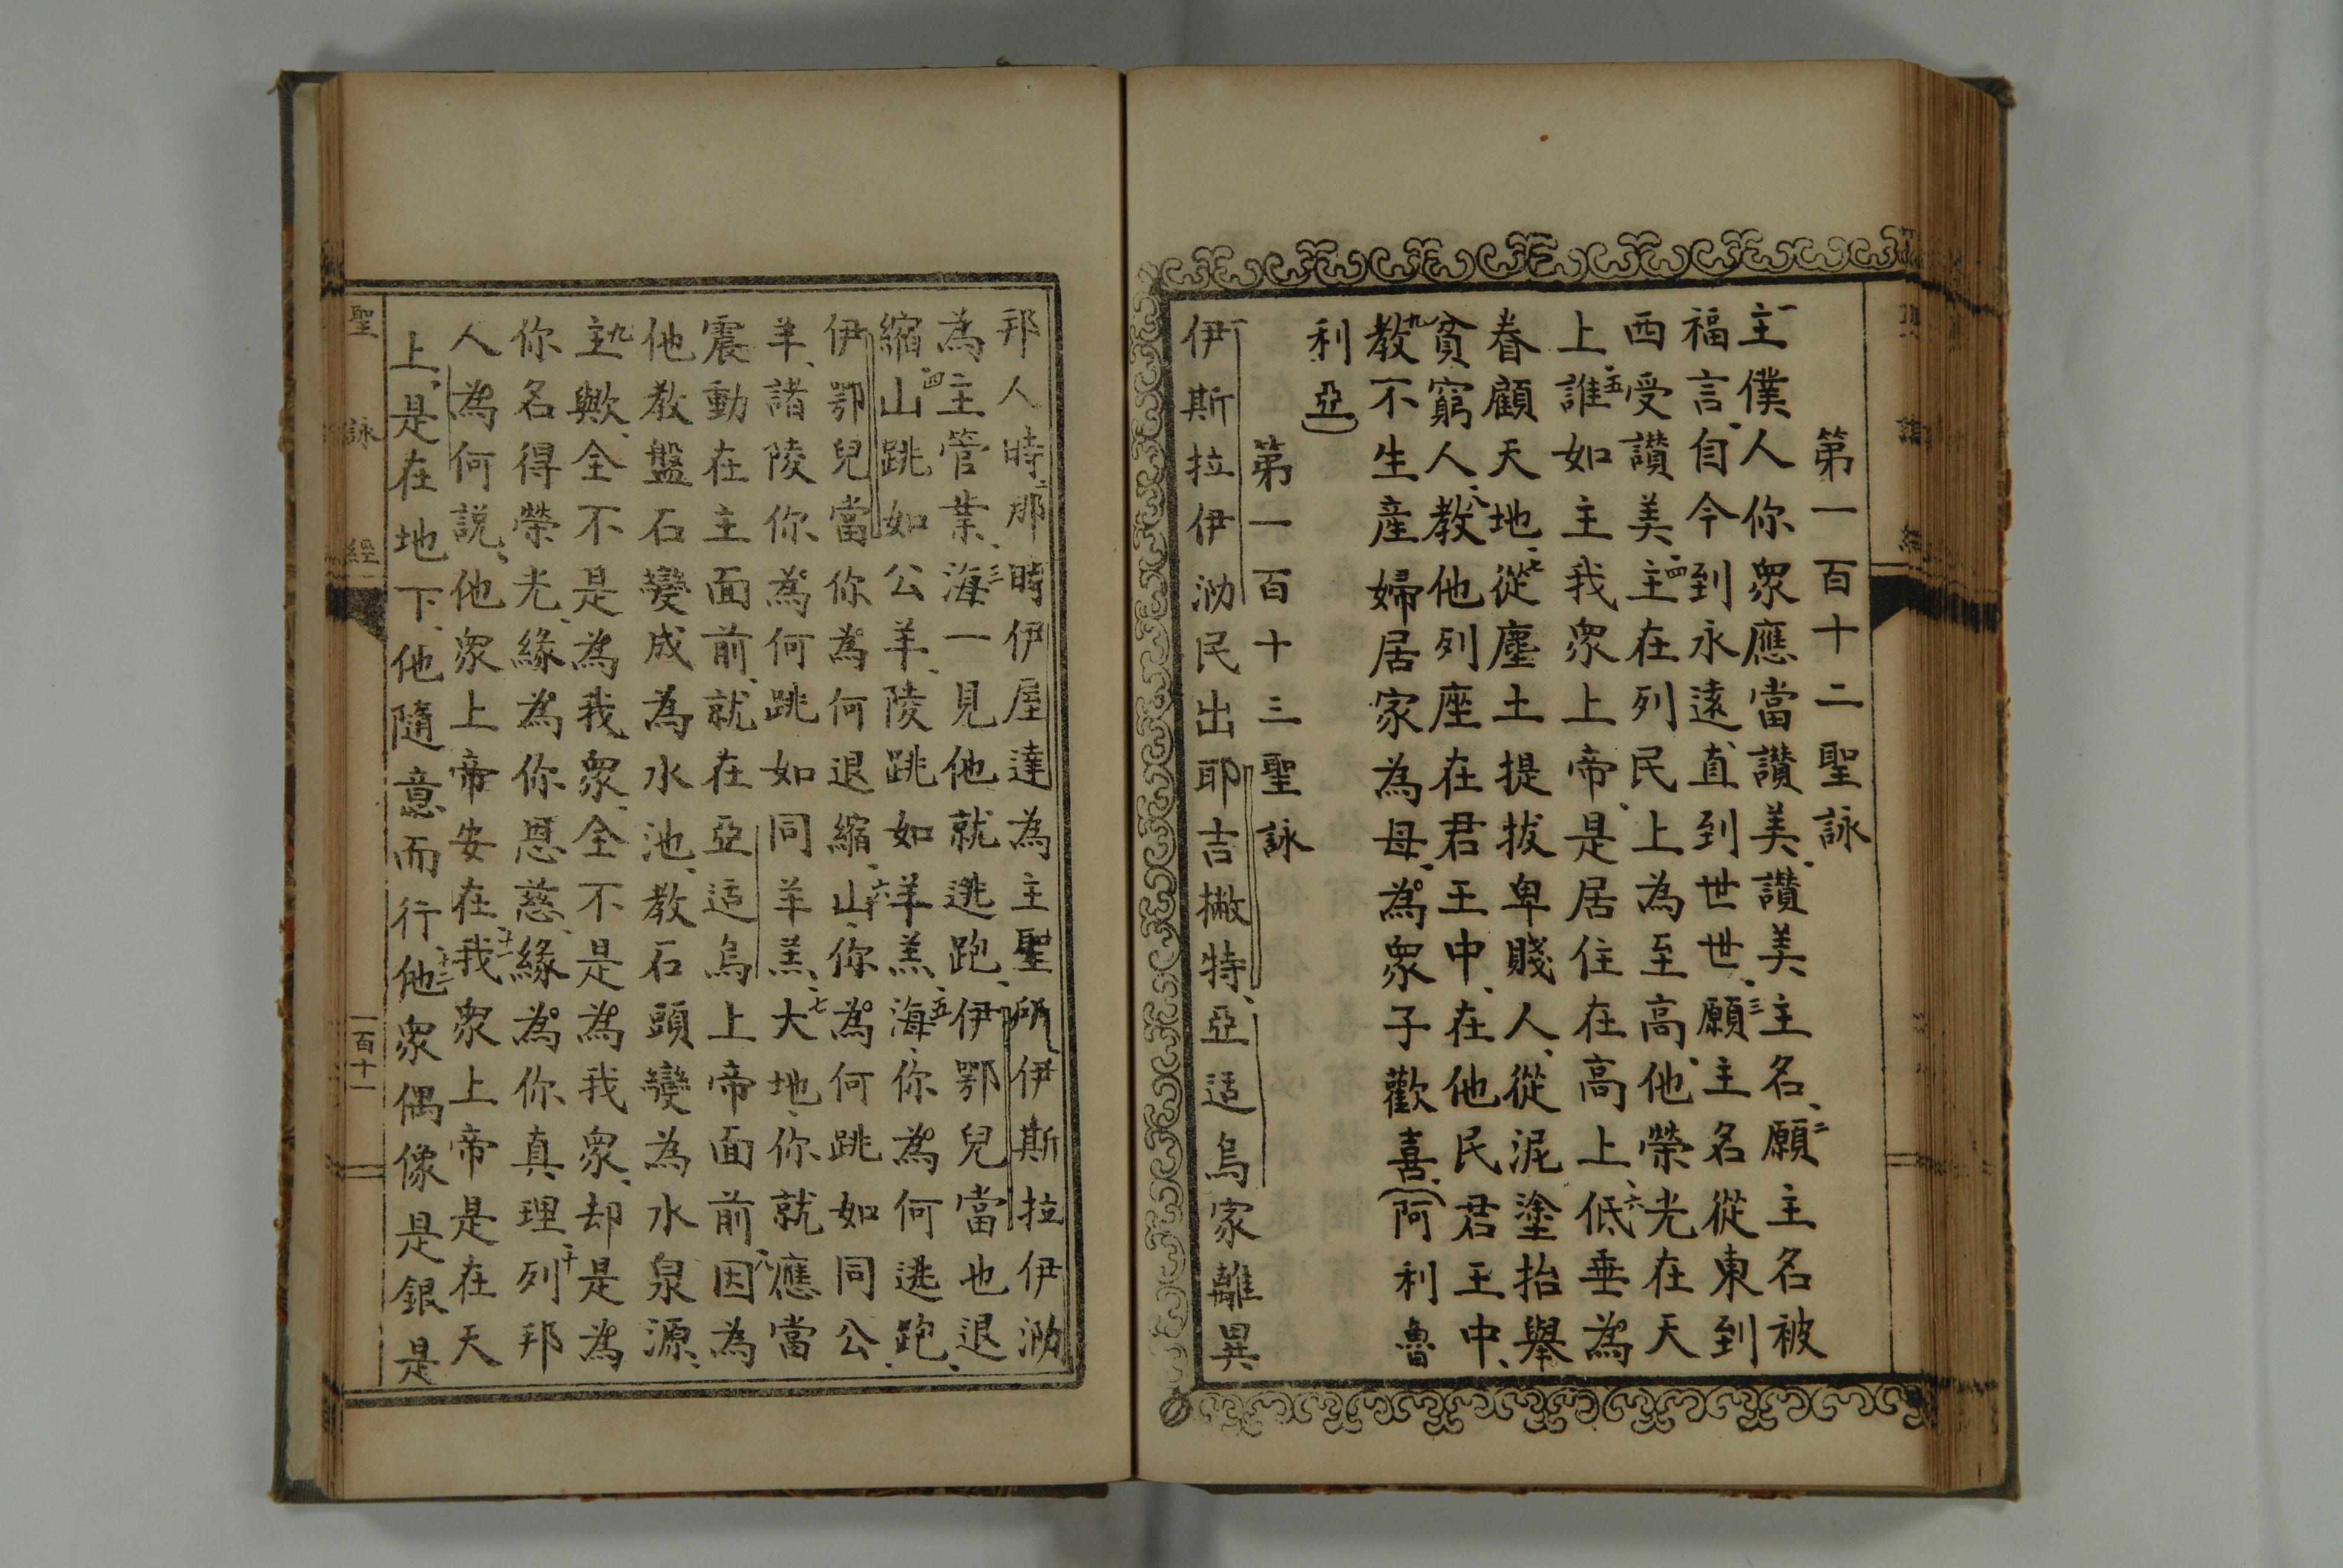 第一百十二聖詠
一主僕人你衆應當讚美、讚美主名、二願主名被
福言、自今到永遠、直到世世、三願主名從東到
西受讚美、四主在列民上為至高、他榮光在天
上、五誰如主我衆上帝、是居住在高上、六低垂為
眷顧天地、七從塵土提拔卑賤人、從泥塗抬舉
貧窮人、八教他列座在君王中、在他民君王中、
九教不生產婦居家為母、為衆子歡喜、(阿利魯
利亞)
第一百十三聖詠
一伊斯拉伊泐民出耶吉撇特、亞适烏家離異
邦人時、二那時伊屋達為主聖所、伊斯拉伊泐
為主管業、三海一見他就逃跑、伊鄂兒當也退
縮、四山跳如公羊、陵跳如羊羔、五海、你為何逃跑、
伊鄂兒當你為何退縮、六山、你為何跳如同公
羊、諸陵你為何跳如同羊羔、七大地、你就應當
震動在主面前、就在亞适烏上帝面前、八因為
他教盤石變成為水池、教石頭變為水泉源、
九主歟、全不是為我衆、全不是為我衆、却是為
你名得榮光、緣為你恩慈、緣為你真理、十列邦
人為何說、他衆上帝安在、十一我衆上帝是在天
上、是在地下、他隨意而行、十二他衆偶像是銀是
聖詠經
一百十一